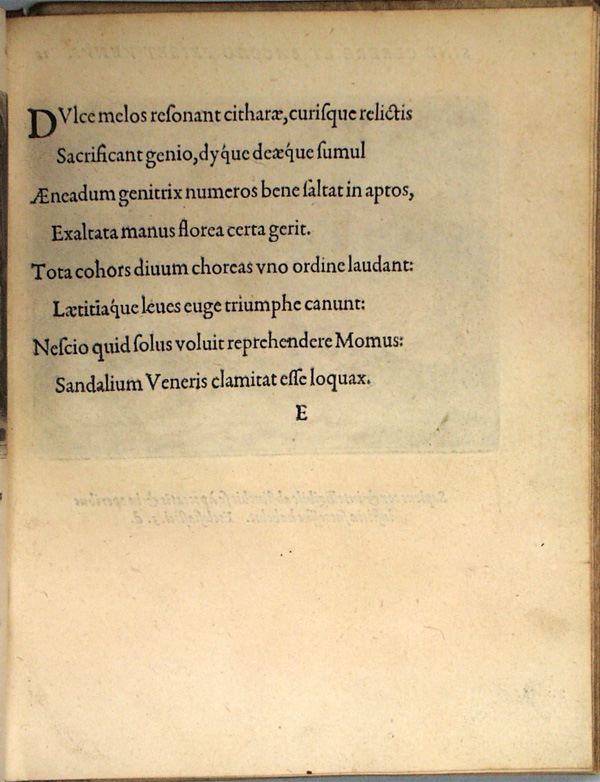 DVlce melos reſonant citharæ, curiſque relictis
Sacrificant genio, dyq́ue deæq́ue ſumul
Æneadum genitrix numeros bene ſaltat in aptos,
Exaltata manus florea certa gerit.
Tota cohors diuum choreas vno ordine laudant:
Lætitiaq́ue leues euge triumphe canunt:
Neſcio quid ſolus voluit reprehendere Momus:
Sandalium Veneris clamitat eſſe loquax.
E